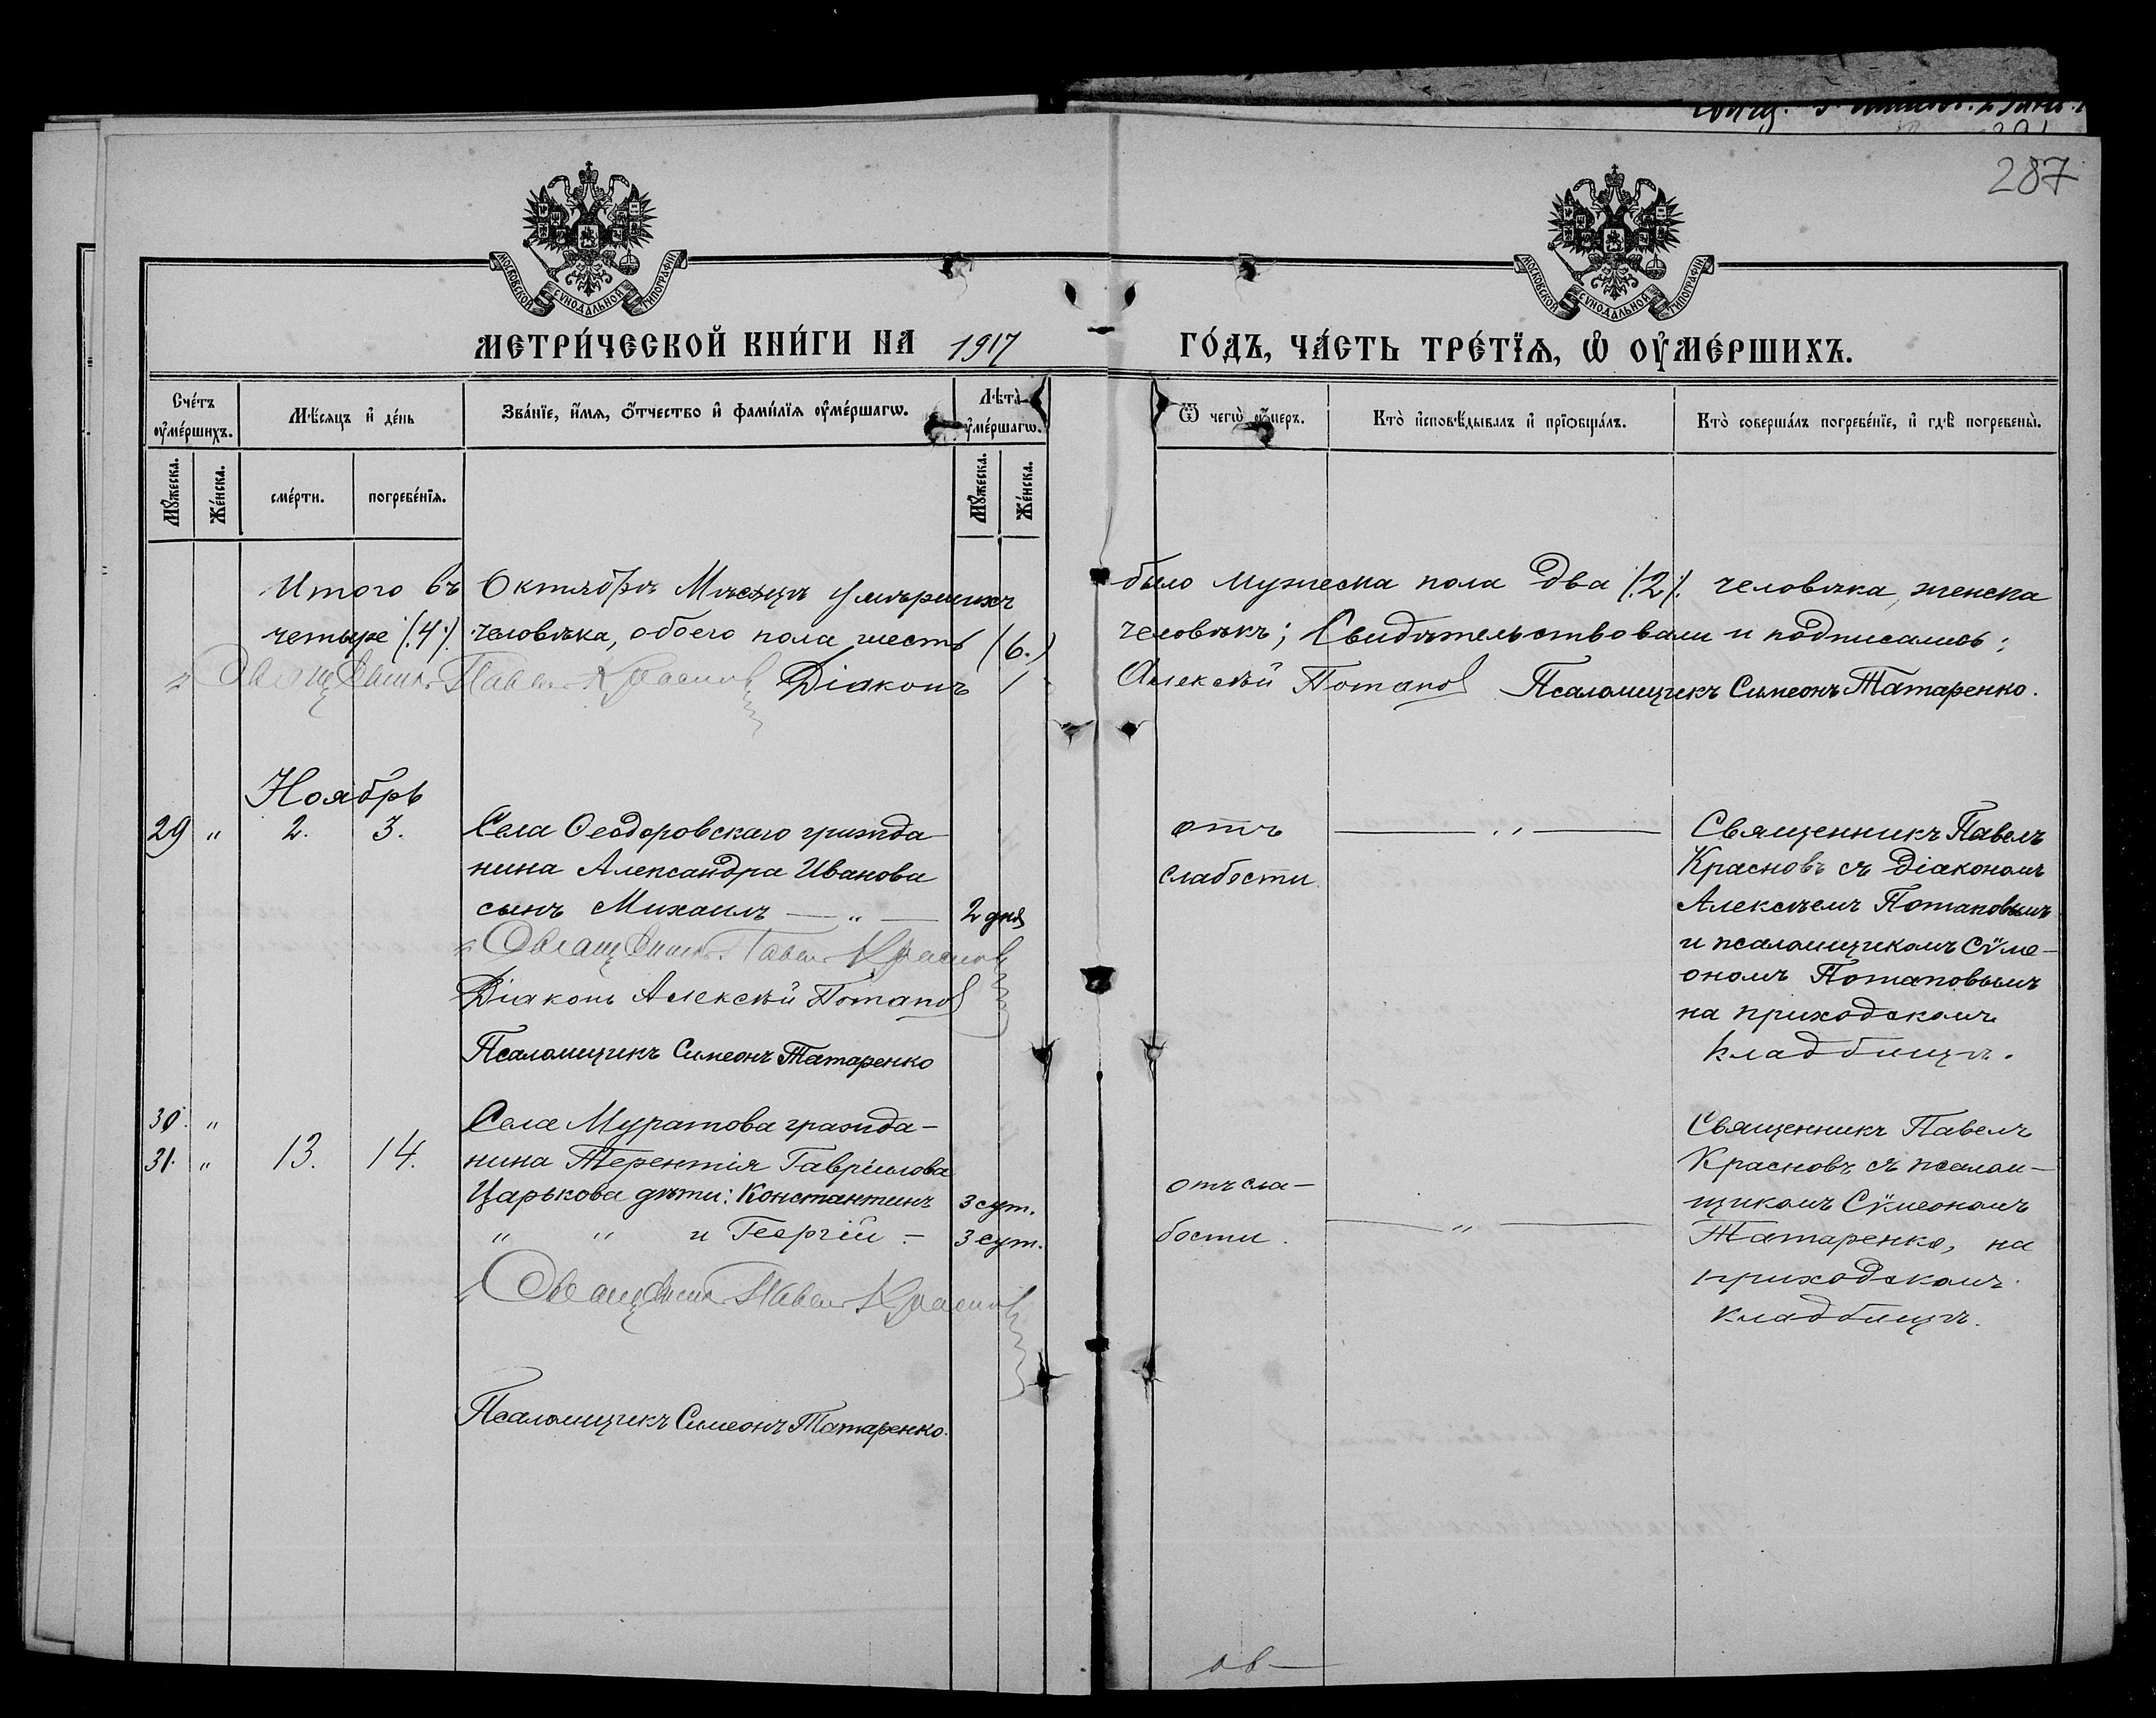 287
МОСКОВСКОЙ СѴНОДАЛЬНОЙ ТИПОГРАФІИ
МОСКОВСКОЙ СѴНОДАЛЬНОЙ ТИПОГРАФІИ
МЕТРИ́ЧЕСКОЙ КНИ́ГИ НА 1917 ГО́ДЪ, ЧА́СТЬ ТРЕ́ТЇѦ, Ѡ҆ ОУ҆МЕ́РШИХЪ.
Сче́тъ оу҆ме́ршихъ.
Мꙋ́жеска.
Же́нска.
Мѣ́сѧцъ и҆ де́нь
сме́рти.
погребе́нїѧ.
Зва́нїе, и҆́мѧ, ѻ҆́тчество и҆ фамѝлїѧ оу҆ме́ршагѡ.
Лѣ́та оу҆ме́ршагѡ.
Мꙋ́жеска.
Же́нска.
Ѿ чегѡ̀ оу҆́меръ.
Кто̀ и҆сповѣ́дывалъ и҆ прїѡбща́лъ.
Кто̀ соверша́лъ погребе́нїе, и҆ гдѣ̀ погребены̀.
Итого въ Октябрѣ Мѣсяцѣ умершихъ было мужеска пола два (2) человѣка, женска
четыре (4) человѣка, обоего пола шесть (6.) человѣкъ; Свидѣтельствовали и подписались:
Священникъ Павелъ Красновъ Діаконъ Алексѣй Потапов Псаломщикъ Симеонъ Татаренко.
Ноябрь
29 " 2. 3.
Села Ѳеодоровскаго гражда-
нина Александра Иванова
сынъ Михаилъ — " — 2 дня
Священникъ Павелъ Красновъ
Діаконъ Алексѣй Потапов
Псаломщикъ Симеонъ Татаренко
отъ
слабости
— " —
Священникъ Павелъ
Красновъ съ Діакономъ
Алексѣемъ Потаповымъ
и псаломщикомъ Сѵме-
ономъ Потаповымъ
на приходскомъ
кладбищѣ.
30. "
31. " 13. 14.
Села Муратова гражда-
нина Терентія Гавріилова
Царькова дѣти: Константинъ 3 сут.
" " и Георгій - 3 сут.
Священникъ Павелъ Красновъ
Псаломщикъ Симеонъ Татаренко.
отъ сла-
бости.
— " —
Священникъ Павелъ
Красновъ съ псалом-
щикомъ Сѵмеономъ
Татаренко, на
приходскомъ
кладбищѣ.